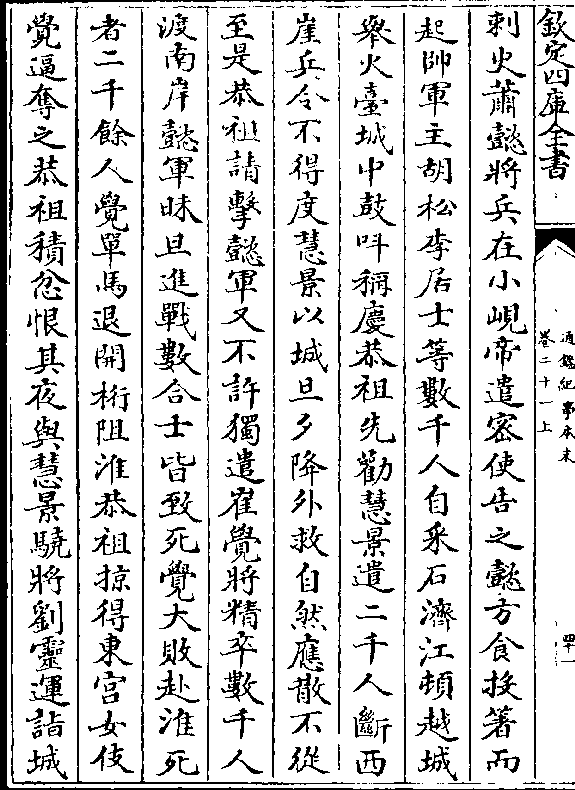 欽定四庫全書
通鑑紀事本末
卷二十一上
四十一
刺火蕭懿將兵在小峴帝遣密使告之懿方食投箸而
起帥軍主胡松李居士等數千人自采石濟江頓越城
舉火臺城中鼓呌稱慶恭祖先勸慧景遣二千人斷西
崖兵令不得度慧景以城旦夕降外救自然應散不從
至是恭祖請擊懿軍又不許獨遣崔覺將精卒數千人
渡南岸懿軍昧旦進戰數合士皆致死覺大敗赴淮死
者二千餘人覺單馬退開桁阻淮恭祖掠得東宫女伎
覺逼奪之恭祖積忿恨其夜與慧景驍將劉靈運詣城